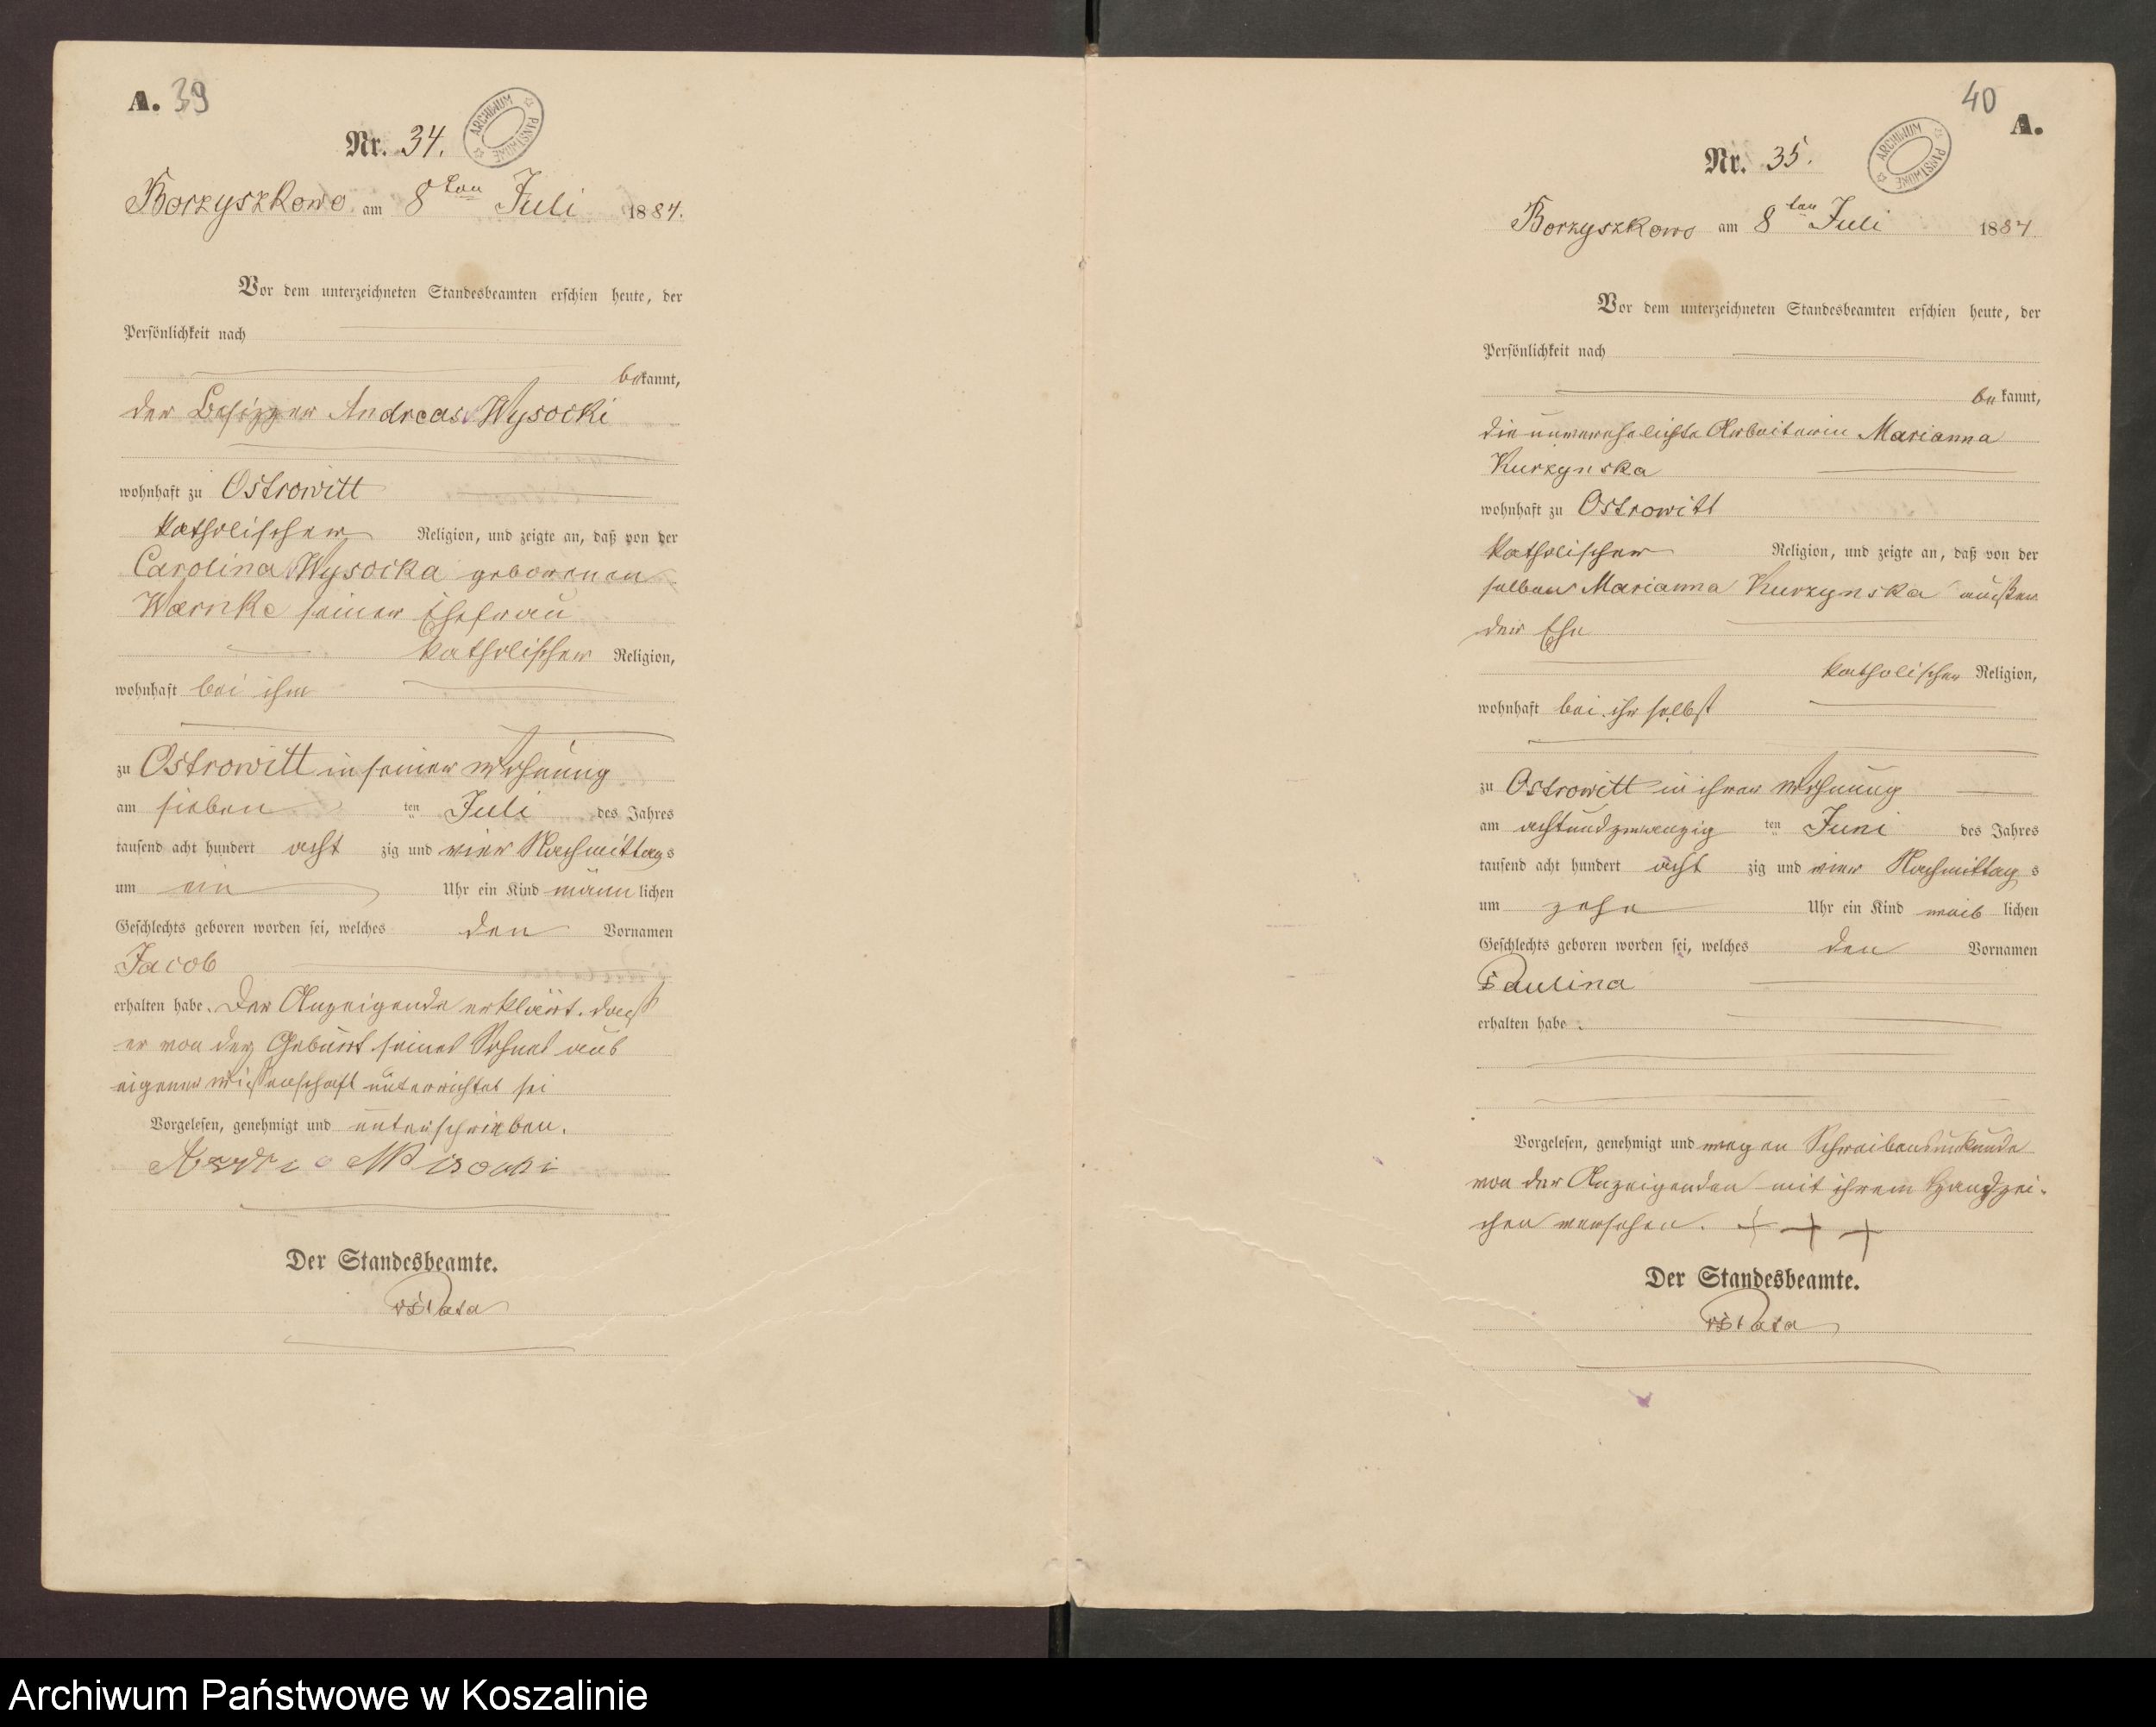 A. 39
Nr. 34.
ARCHIWUM PAŃSTWOWE
Borzyszkowo am 8ten Juli 1884.
Vor dem unterzeichneten Standesbeamten erschien heute, der
Persönlichkeit nach
bekannt,
der Besitzer Andreas Wysocki
wohnhaft zu Ostrowitt
katholischer Religion, und zeigte an, daß von der
Carolina Wysocka geborenen
Warnke seiner Ehefrau
katholischer Religion,
wohnhaft bei ihm
zu Ostrowitt in seiner Wohnung
am sieben ten Juli des Jahres
tausend acht hundert acht zig und vier Nachmittags
um ein Uhr ein Kind männlichen
Geschlechts geboren worden sei, welches den Vornamen
Jacob
erhalten habe. Der Anzeigende erklärt, dass
er von der Geburt seines Sohnes aus
eigener Wissenschaft unterrichtet sei
Vorgelesen, genehmigt und unterschrieben.
Der Standesbeamte.
40
A.
Nr. 35.
ARCHIWUM PAŃSTWOWE
Borzyszkowo am 8ten Juli 1884
Vor dem unterzeichneten Standesbeamten erschien heute, der
Persönlichkeit nach
bekannt,
die unverehelichte Arbeiterin Marianna
Kurzynska
wohnhaft zu Ostrowitt
katholischer Religion, und zeigte an, daß von der
selben Marianna Kurzynska außer
der Ehe
katholischer Religion,
wohnhaft bei ihr selbst
zu Ostrowitt in ihrer Wohnung
am achtundzwanzig ten Juni des Jahres
tausend acht hundert acht zig und vier Nachmittag s
um zehn Uhr ein Kind weib lichen
Geschlechts geboren worden sei, welches den Vornamen
Paulina
erhalten habe.
Vorgelesen, genehmigt und wegen Schreibensunkunde
von der Anzeigenden mit ihrem Handzei-
chen versehen. + + +
Der Standesbeamte.
Archiwum Państwowe w Koszalinie